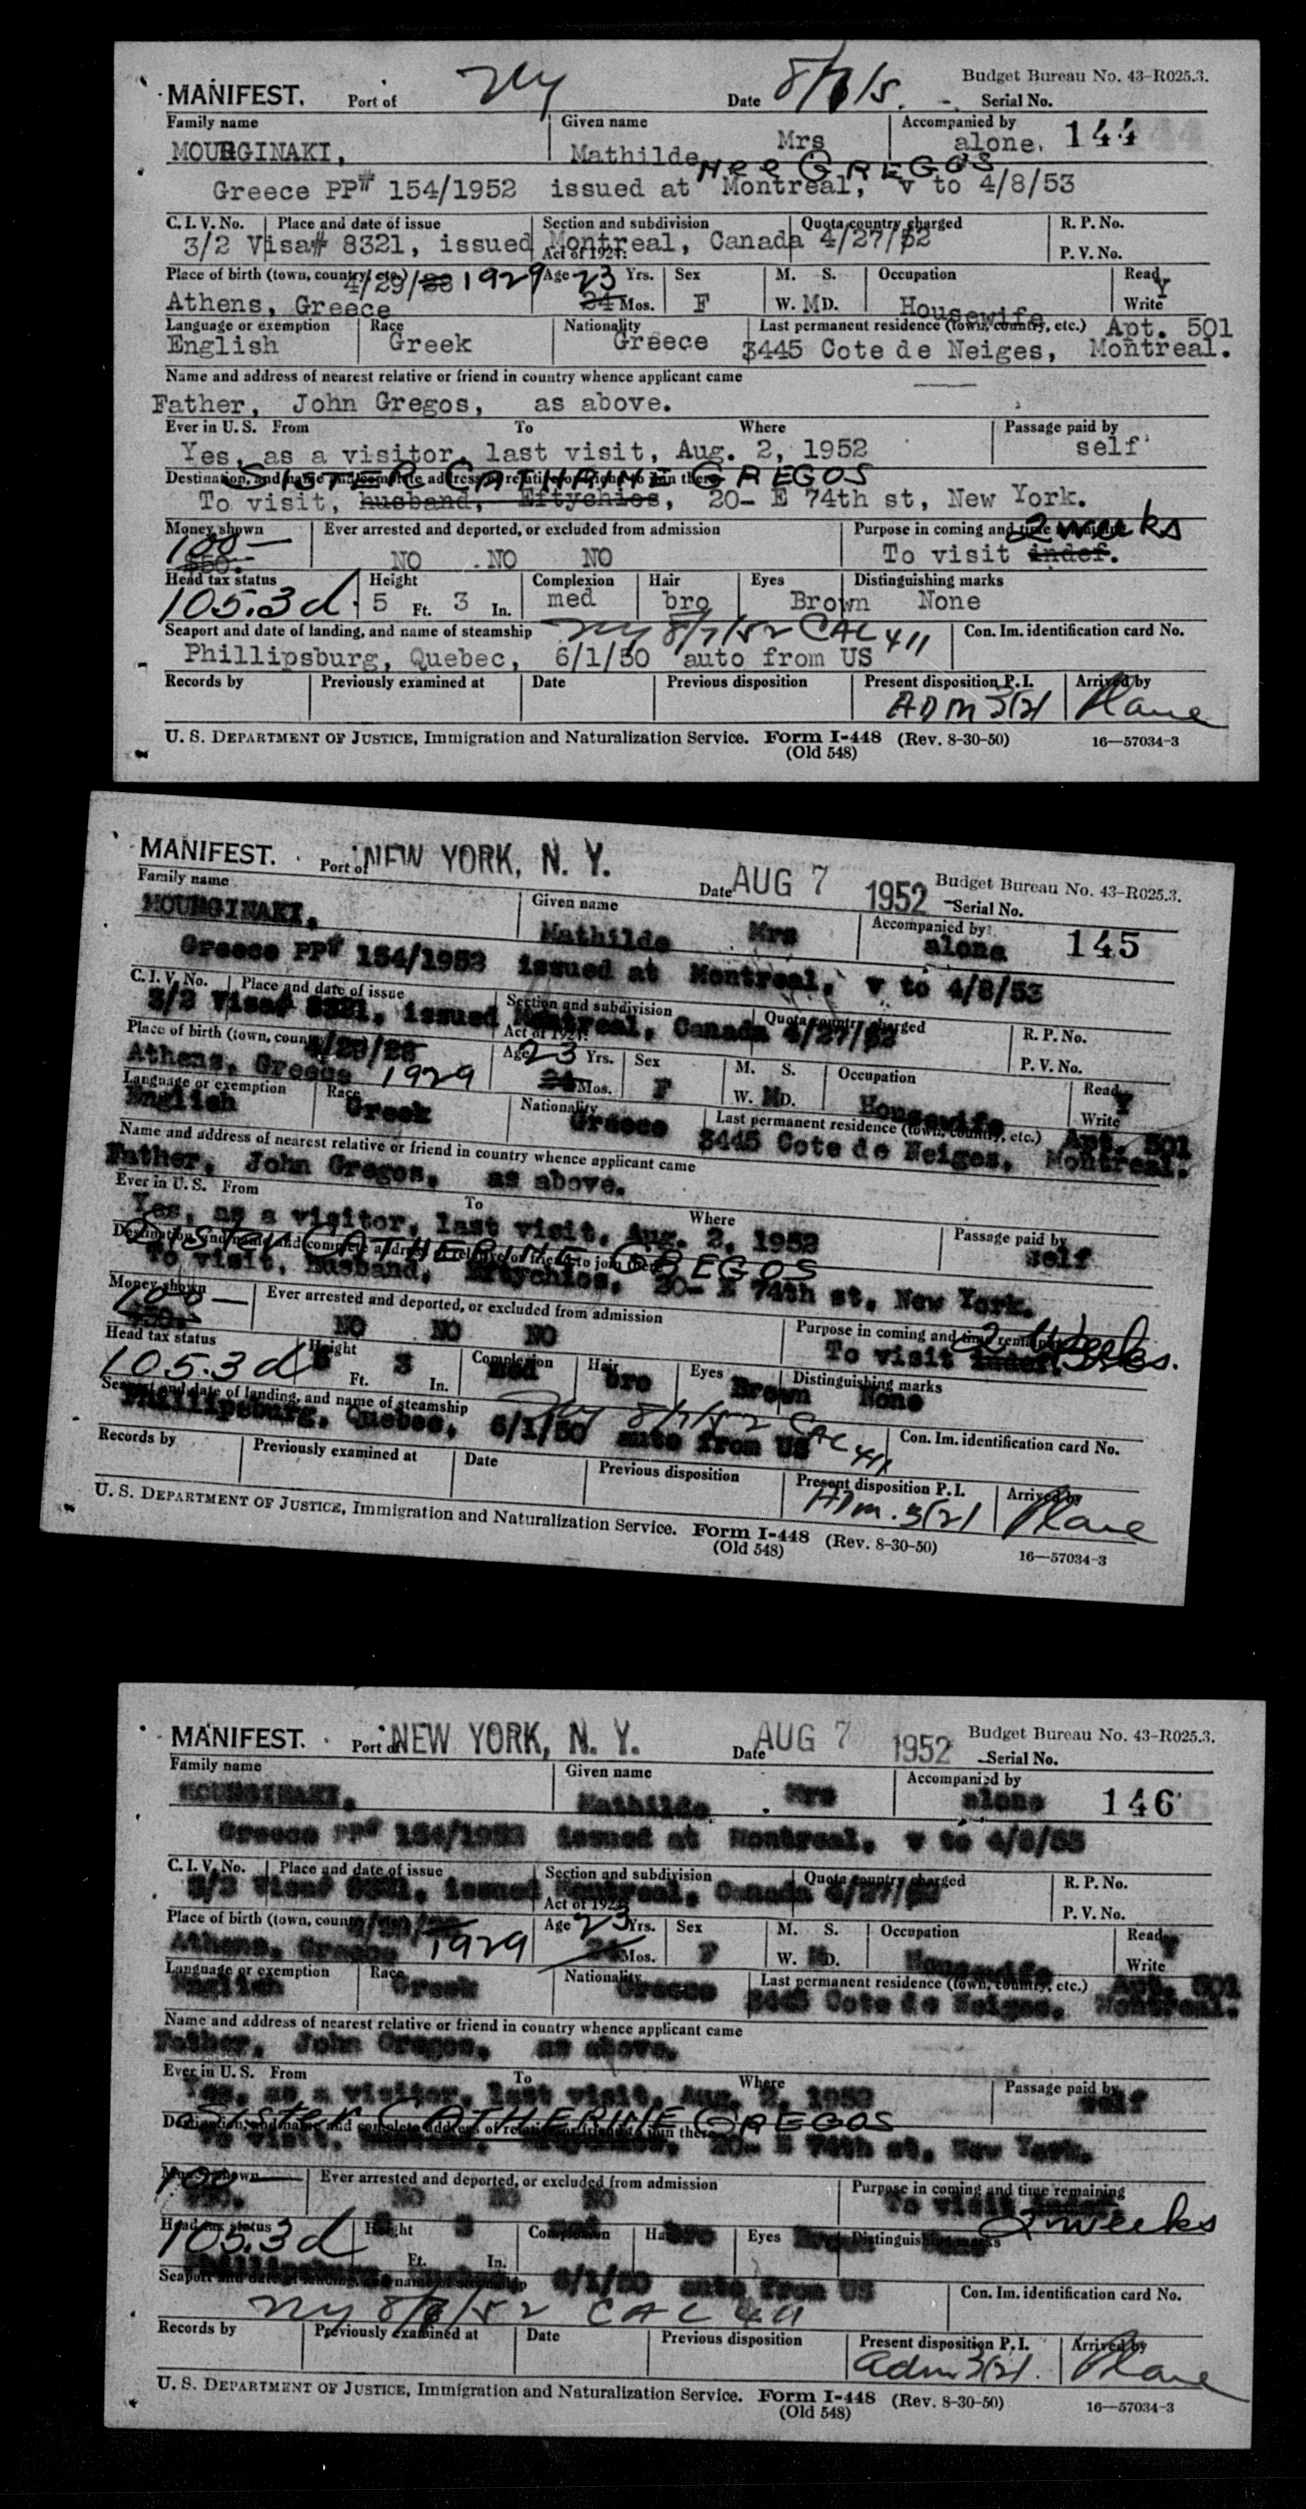 MANIFEST. Port of NY Date 8/7/5. Budget Bureau No. 43-R025.3.
Serial No.
Family name Given name Accompanied by
MOURGINAKI, Mathilde Mrs alone. 144
nee GREGOS
Greece PP# 154/1952 issued at Montreal, v to 4/8/53
C. I. V. No. Place and date of issue Section and subdivision Quota country charged R. P. No.
3/2 Visa# 8321, issued Montreal, Canada 4/27/52
Act of 1924. P. V. No.
Place of birth (town, country, etc.) 4/29/28 1929 Age 23 Yrs. Sex M. S. Occupation Read Y
Athens, Greece 24 Mos. F W. M D. Housewife Write
Language or exemption Race Nationality Last permanent residence (town, country, etc.) Apt. 501
English Greek Greece 3445 Cote de Neiges, Montreal.
Name and address of nearest relative or friend in country whence applicant came
Father, John Gregos, as above.
Ever in U. S. From To Where Passage paid by
Yes, as a visitor, last visit, Aug. 2, 1952 self
SISTER CATHRINE GREGOS
Destination, and name and complete address of relative or friend to join there
To visit, husband, Eftychios, 20- E 74th st, New York.
Money shown Ever arrested and deported, or excluded from admission Purpose in coming and time remaining 2 weeks
100— $50.- NO NO NO To visit indef.
Head tax status Height Complexion Hair Eyes Distinguishing marks
105.3d. 5 Ft. 3 In. med bro Brown None
Seaport and date of landing, and name of steamship NY 8/7/52 CAL 411 Con. Im. identification card No.
Phillipsburg, Quebec, 6/1/50 auto from US
Records by Previously examined at Date Previous disposition Present disposition P. I. Arrived by
ADM 3(2) Plane
U. S. DEPARTMENT OF JUSTICE, Immigration and Naturalization Service. Form I-448 (Rev. 8-30-50) 16—57034-3
(Old 548)
MANIFEST. Port of NEW YORK, N. Y. Date AUG 7 1952 Budget Bureau No. 43-R025.3.
Serial No.
Family name Given name Accompanied by
MOURGINAKI, Mathilde Mrs alone 145
Greece PP# 154/1952 issued at Montreal, v to 4/8/53
C. I. V. No. Place and date of issue Section and subdivision Quota country charged R. P. No.
3/2 Visa# 8321, issued Montreal, Canada 4/27/52
Act of 1924. P. V. No.
Place of birth (town, country 4/29/28 Age 23 Yrs. Sex M. S. Occupation Read Y
Athens, Greece 1929 24 Mos. F W. M D. Housewife Write
Language or exemption Race Nationality Last permanent residence (town, country, etc.) Apt. 501
English Greek Greece 3445 Cote de Neiges, Montreal.
Name and address of nearest relative or friend in country whence applicant came
Father, John Gregos, as above.
Ever in U. S. From To Where Passage paid by
Yes, as a visitor, last visit, Aug. 2, 1952 self
Sister CATHERINE GREGOS
Destination, and name and complete address of relative or friend to join there
To visit, husband, Eftychios, 20- E 74th st, New York.
Money shown Ever arrested and deported, or excluded from admission Purpose in coming and time remaining 2 weeks.
100— $50.- NO NO NO To visit indef.
Head tax status Height Complexion Hair Eyes Distinguishing marks
105.3d 5 Ft. 3 In. med bro Brown None
Seaport and date of landing, and name of steamship NY 8/7/52 CAL 411 Con. Im. identification card No.
Phillipsburg, Quebec, 6/1/50 auto from US
Records by Previously examined at Date Previous disposition Present disposition P. I. Arrived by
Adm. 3(2) Plane
U. S. DEPARTMENT OF JUSTICE, Immigration and Naturalization Service. Form I-448 (Rev. 8-30-50) 16—57034-3
(Old 548)
MANIFEST. Port of NEW YORK, N. Y. Date AUG 7 1952 Budget Bureau No. 43-R025.3.
Serial No.
Family name Given name Accompanied by
MOURGINAKI, Mathilde Mrs alone 146
Greece PP# 154/1952 issued at Montreal, v to 4/8/53
C. I. V. No. Place and date of issue Section and subdivision Quota country charged R. P. No.
3/2 Visa# 8321, issued Montreal, Canada 4/27/52
Act of 1924 P. V. No.
Place of birth (town, country Age 23 Yrs. Sex M. S. Occupation Read Y
Athens, Greece 1929 24 Mos. F W. M D. Housewife Write
Language or exemption Race Nationality Last permanent residence (town, country, etc.) Apt. 501
English Greek Greece 3445 Cote de Neiges, Montreal.
Name and address of nearest relative or friend in country whence applicant came
Father, John Gregos, as above.
Ever in U. S. From To Where Passage paid by
Yes, as a visitor, last visit, Aug. 2, 1952 self
Sister CATHERINE GREGOS
Destination, and name and complete address of relative or friend to join there
To visit, husband, Eftychios, 20- E 74th st, New York.
Money shown Ever arrested and deported, or excluded from admission Purpose in coming and time remaining
100— $50. NO NO NO To visit indef 2 weeks
Head tax status Height Complexion Hair Eyes Distinguishing marks
105.3d 5 Ft. 3 In. med bro Brown None
Phillipsburg, Quebec, 6/1/50 auto from US
Seaport and date of landing, and name of steamship Con. Im. identification card No.
NY 8/7/52 CAL 411
Records by Previously examined at Date Previous disposition Present disposition P. I. Arrived by
Adm 3(2). Plane
U. S. DEPARTMENT OF JUSTICE, Immigration and Naturalization Service. Form I-448 (Rev. 8-30-50) 16—57034-3
(Old 548)